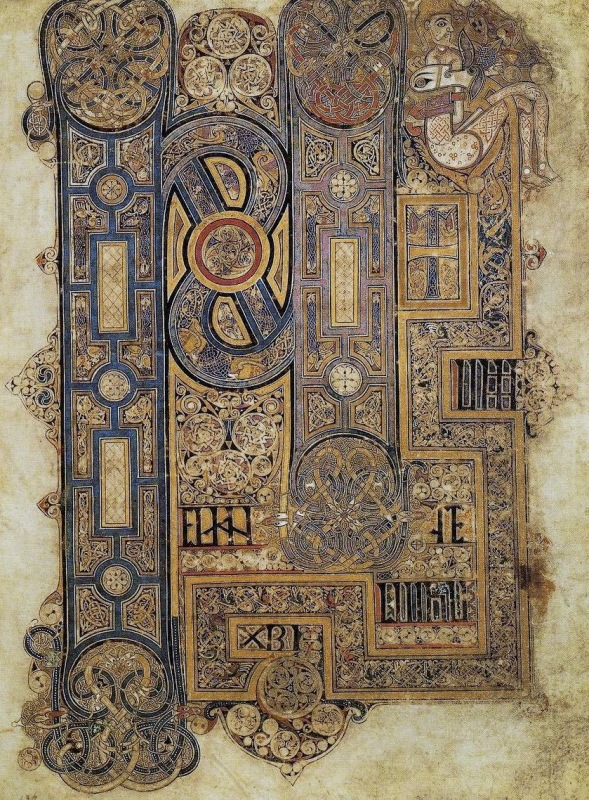 INI
TIUM
EUAN GE
LII IHU
XPI